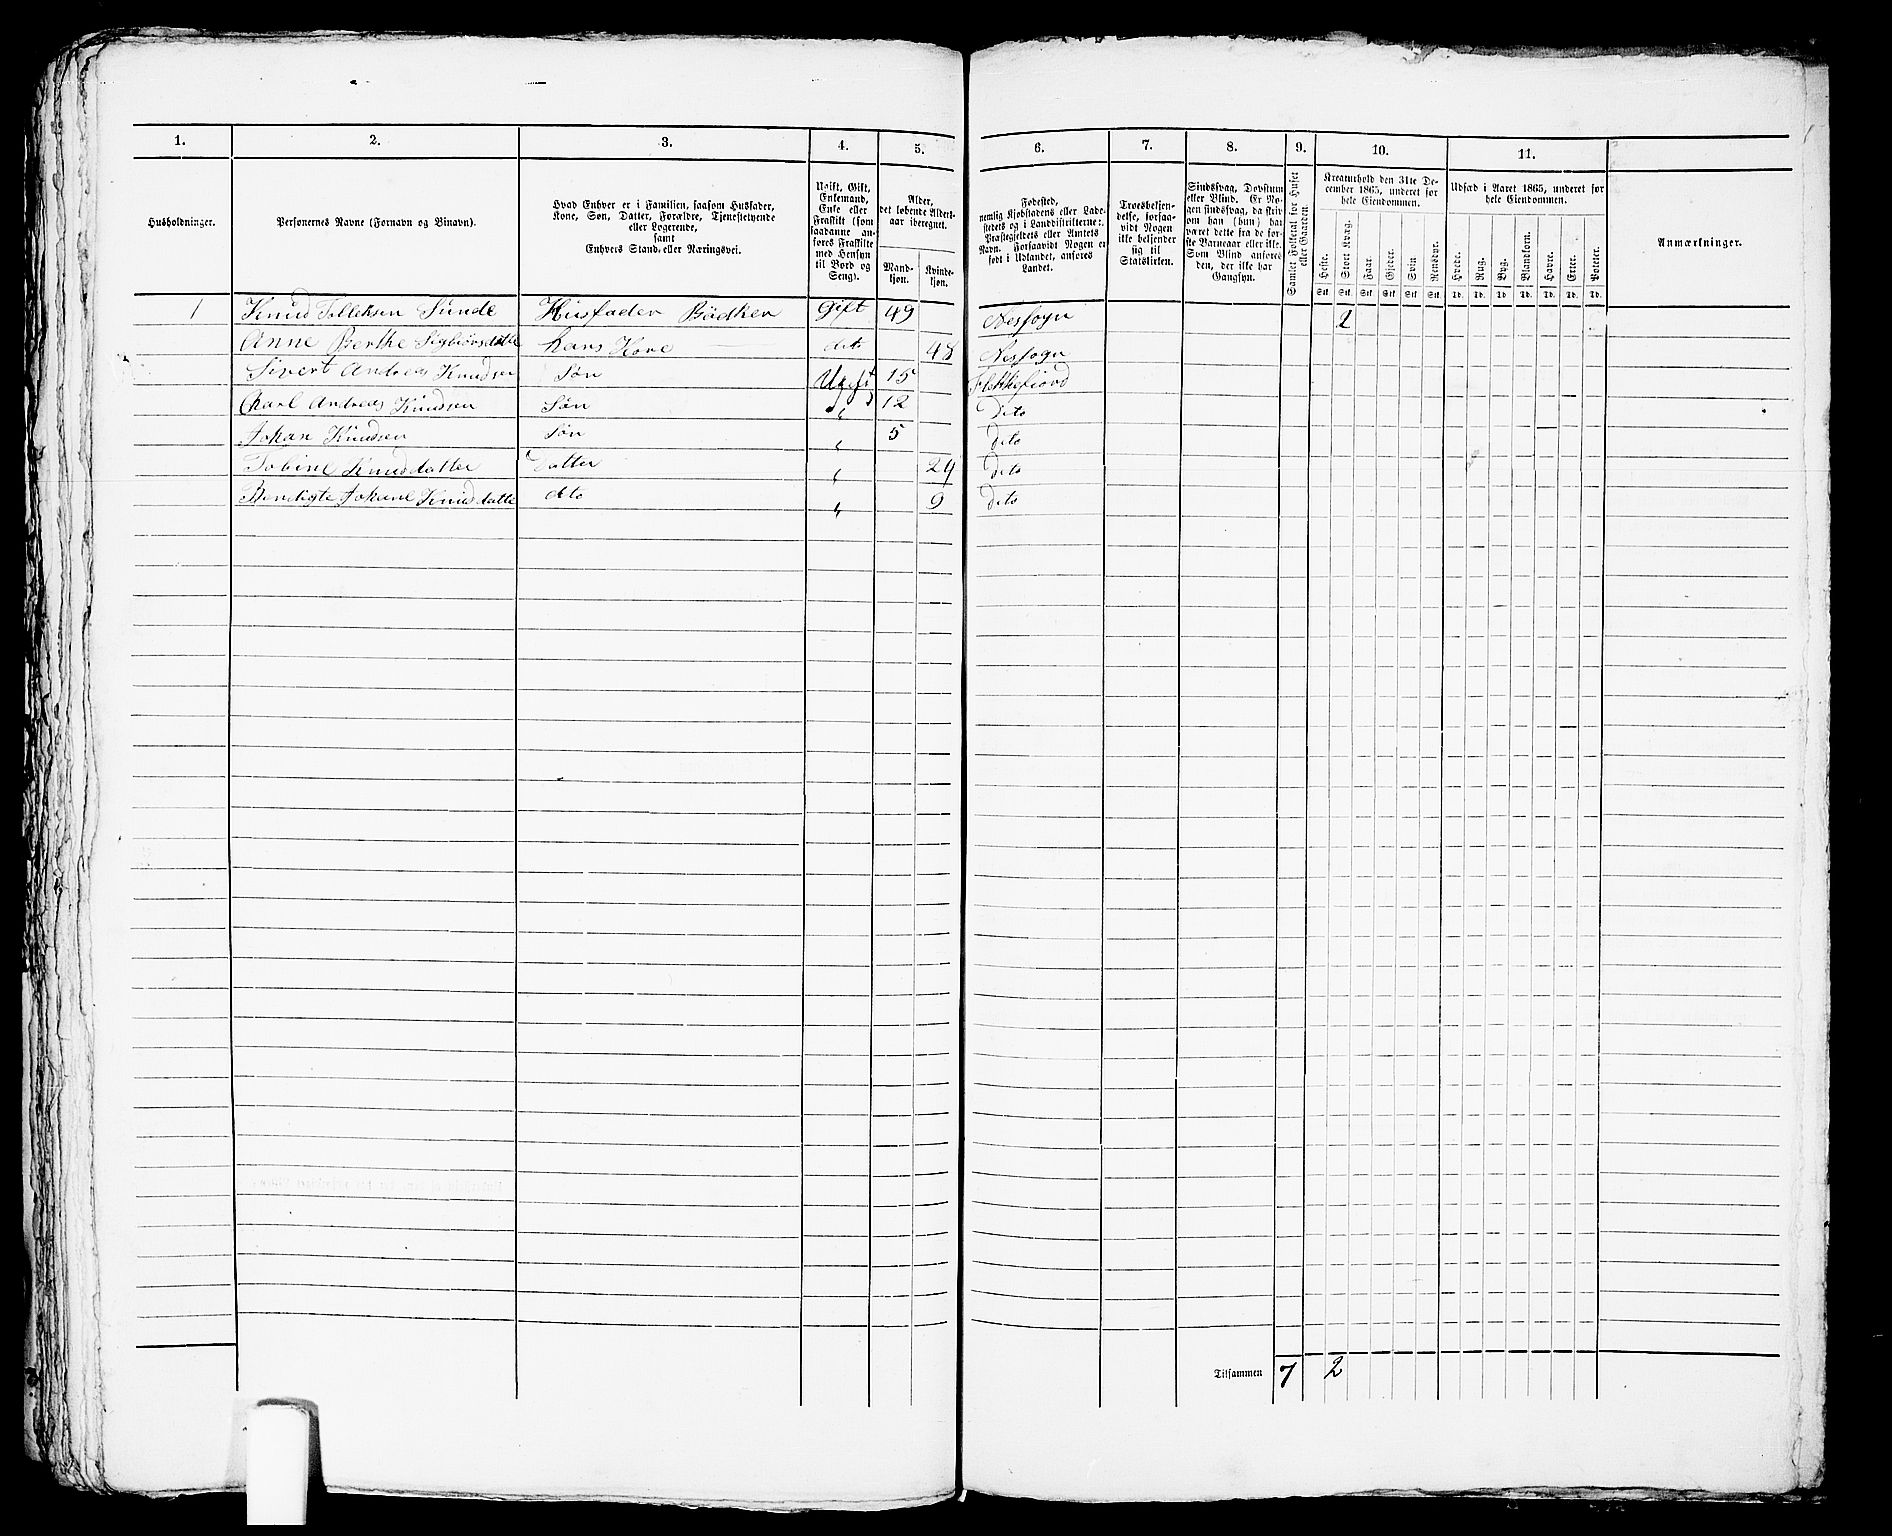 1.
2.
3.
4.
5.
Husholdninger.
Personernes Navne (Fornavn og Binavn).
Hvad Enhver er i Familien, saasom Husfader,
Kone, Søn, Datter, Forældre, Tjenestetyende
eller Logerende,
samt
Enhvers Stand eller Næringsvei.
Ugift, Gift,
Enkemand,
Enke eller
Fraskilt (som
saadanne an-
føres Fraskilte
med Hensyn
til Bord og
Seng).
Alder,
det løbende Alders-
aar iberegnet.
Mand-
kjøn.
Kvinde-
kjøn.
1 Knud Tolleksen Sunde Husfader Bødker Gift 49
Anne Berthe Sigbiørsdatter hans Kone dito 48
Sivert Andreas Knudsen Søn Ugift 15
Charl Andreas Knudsen Søn " 12
Johan Knudsen Søn " 5
Tobine Knudsdatter Datter " 24
Bendigte Johane Knudsdatte dito " 9
6.
7.
8.
9.
10.
11.
Fødested,
nemlig Kjøbstadens eller Lade-
stedets og i Landdistrikterne:
Præstegjeldets eller Amtets
Navn. Forsaavidt Nogen er
født i Udlandet, anføres
Landet.
Troesbekjen-
delse, forsaa-
vidt Nogen
ikke bekjender
sig til
Statskirken.
Sindssvag, Døvstum
eller Blind. Er No-
gen sindssvag, da skriv
om han (hun) har
været dette fra de før-
ste Barneaar eller ikke.
Som Blind anføres
den, der ikke har
Gangsyn.
Samlet Folketal for Huset
eller Gaarden.
Kreaturhold den 31te De-
cember 1865, underet for
hele Eiendommen.
Heste.
Stort Kvæg.
Faar.
Gjeder.
Svin
Rensdyr.
Stk. Stk. Stk. Stk. Stk. Stk.
Udsæd i Aaret 1865, underet for
hele Eiendommen.
Hvede.
Rug.
Byg.
Blandkorn.
Havre.
Erter.
Poteter.
Td. Td. Td. Td. Td. Td. Td.
Anmærkninger.
Nessogn 2
Nessogn
Flekkefiord
Dito
Dito
Dito
Dito
Tilsammen 7 2